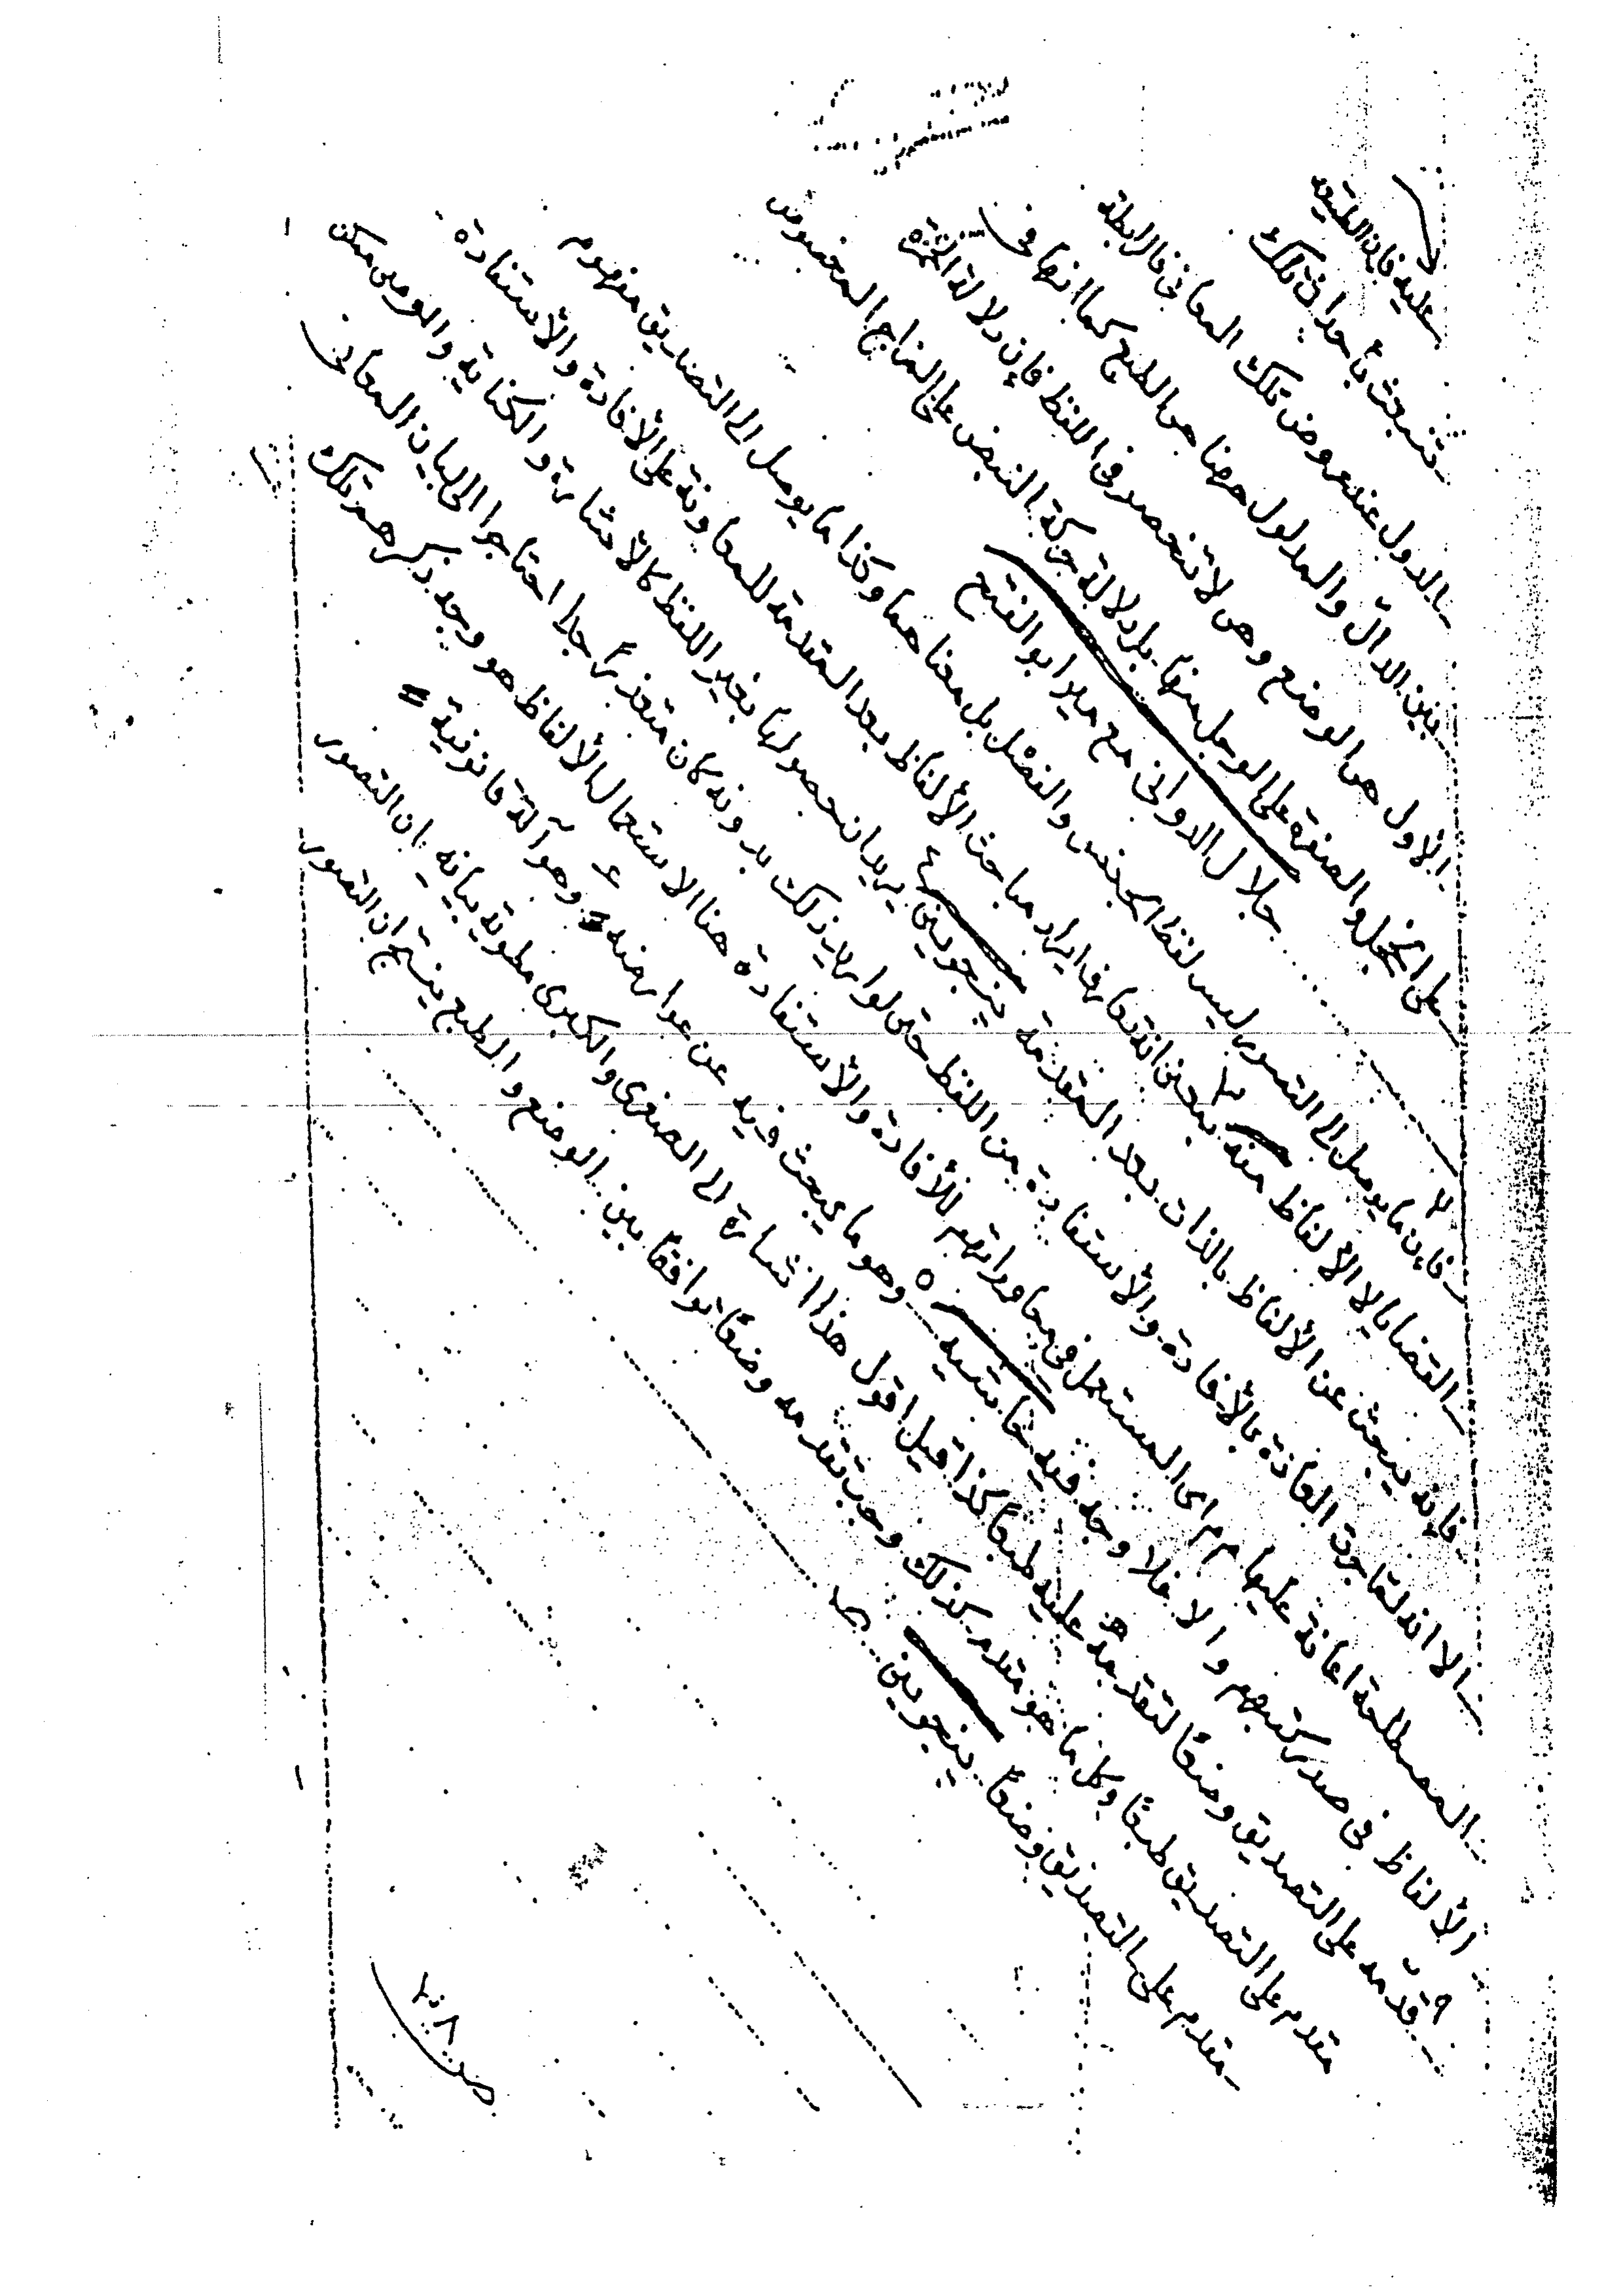 عليه فان الطبيعة
تنبعث باحداث تلك
الدول عند عروض تلك المعانى فالرابطة
بين الدالّ والمدلول ههنا هى الطبع كما انها فى
الأول هى الوضع وهى لا تنحصر فى اللفظ فإن دلالة الحمرة
على الخجل والصفرة على الوجل منها بل دلالة حركة النبض على المزاج المخصوص
جلال الدوانى مع مير ابو الفتح
فإن ما يوصل الى التصور ليس لفظ الجنس والفصل بل معناهما وكذا ما يوصل الى التصديق مفهوم
القضايا لا الألفاظ منه
يعنى انه تعارف ايراد مباحث الألفاظ بعد المقدمة للمعاونة على الأفادة والأستفادة
فإنه يبحث عن الألفاظ بالذات بعد المقدمة ينجوينى
يريد ان حصولها بغير اللفظ كالأشارة والكناية والومى ممكن
الا انه لقا جرت العادة بالأفادة والأستفادة من اللفظ حتى لو اريد ذلك بدونه كان متعذرًا جدا احتاجوا الى بيان المعانى
المصطلحة اعانة عليها م اى المستعمل فى محاوراتهم للأفادة والأستفادة هنا الاستعمال الألفاظ هو وجه ذكرهم تلك
الألفاظ فى صدر كتبهم والا فلا وجه فيه خاتميه
وهو ما يبحث فيه عن عوارضه
وهو آلة قانونية
قدّمه على التصديق وضعًا لتقدمه عليه طبعًا كذا قيل اقول هذا اشارة الى الصغرى والكبرى مطوية بيانه ان التصور
مقدم على التصديق طبعًا وكل ما هو مقدم كذلك وجب تقدمه وضعًا توافقًا بين الوضع والطبع ينتج ان التصور
مقدم على التصديق وضعًا ينجوينى